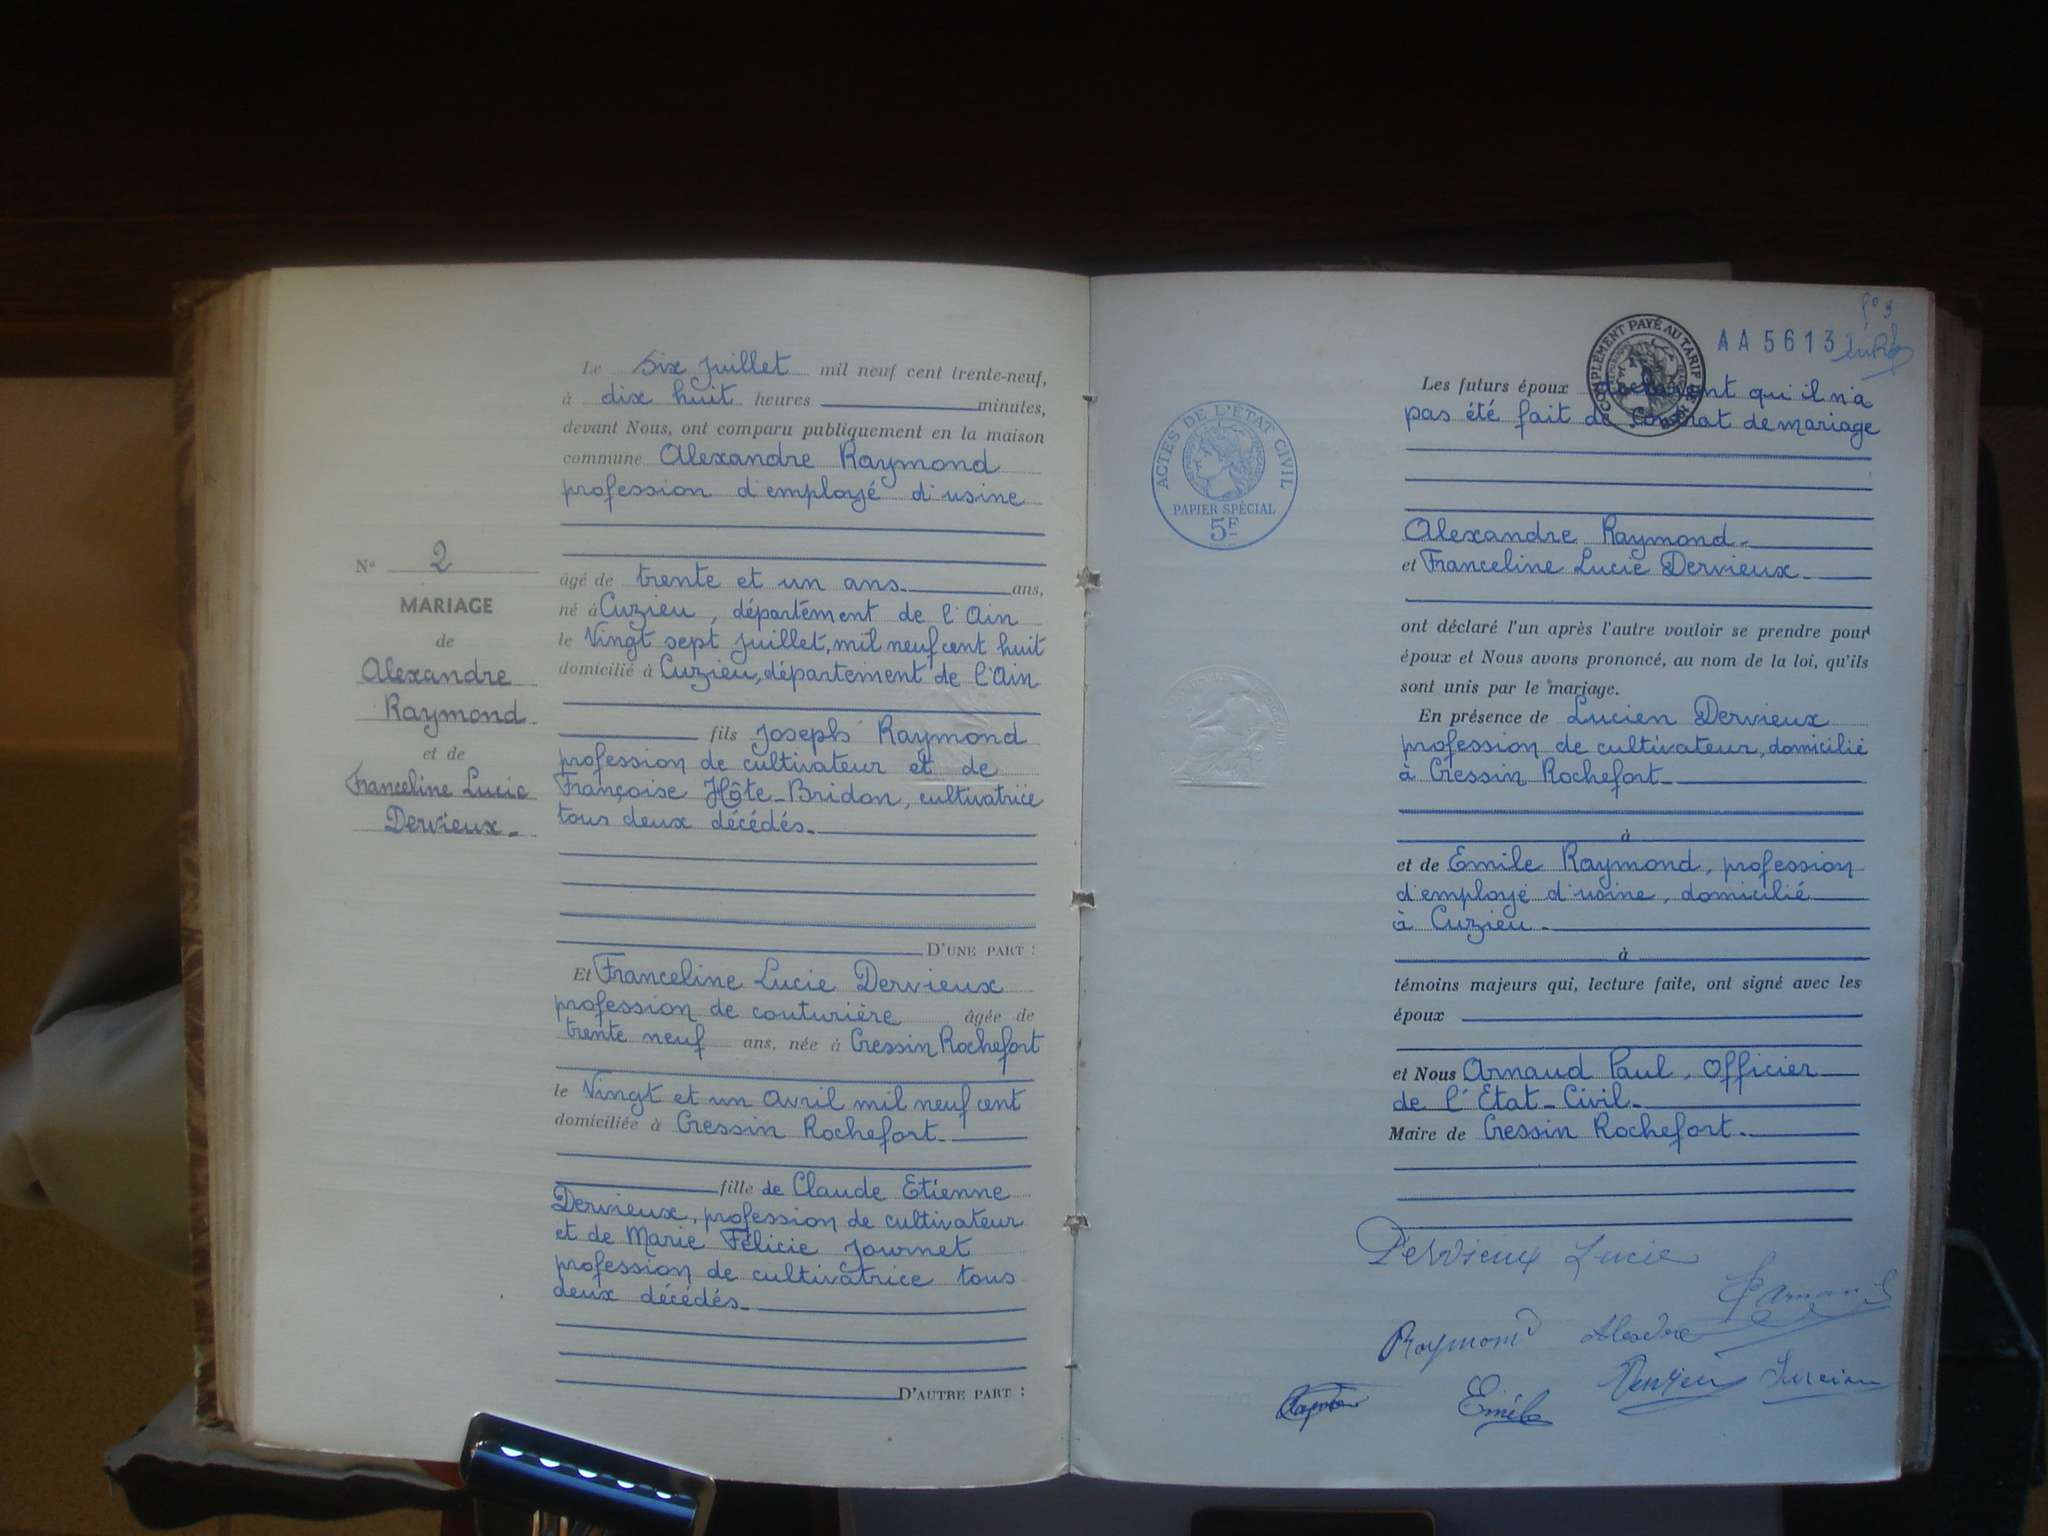 Le Six Juillet mil neuf cent trente-neuf,
à dix huit heures minutes,
devant Nous, ont comparu publiquement en la maison
commune Alexandre Raymond
profession d'employé d'usine
N° 2
MARIAGE
de
Alexandre
Raymond
et de
Franceline Lucie
Dervieux
âgé de trente et un ans ans,
né à Cuzieu, département de l'Ain
le Vingt sept Juillet, mil neuf cent huit
domicilié à Cuzieu, département de l'Ain
fils Joseph Raymond
profession de cultivateur et de
Françoise Hôte-Bridon, cultivatrice
tous deux décédés
D'UNE PART :
Et Franceline Lucie Dervieux
profession de couturière âgée de
trente neuf ans, née à Cressin Rochefort
le Vingt et un Avril mil neuf cent
domiciliée à Cressin Rochefort
fille de Claude Etienne
Dervieux, profession de cultivateur
et de Marie Félicie Journet
profession de cultivatrice tous
deux décédés
D'AUTRE PART :
ACTES DE L'ÉTAT CIVIL
PAPIER SPÉCIAL
5F
COMPLÉMENT PAYÉ AU TARIF DE
AA 5613
Les futurs époux déclarent qui il n'a
pas été fait de Contrat de mariage
Alexandre Raymond
et Franceline Lucie Dervieux
ont déclaré l'un après l'autre vouloir se prendre pour
époux et Nous avons prononcé, au nom de la loi, qu'ils
sont unis par le mariage.
En présence de Lucien Dervieux
profession de cultivateur, domicilié
à Cressin Rochefort
à
et de Emile Raymond, profession
d'employé d'usine, domicilié
à Cuzieu
à
témoins majeurs qui, lecture faite, ont signé avec les
époux
et Nous Arnaud Paul, Officier
de l'Etat-Civil
Maire de Cressin Rochefort
Dervieux Lucie
P Arnaud
Raymond
Lucien
Emile